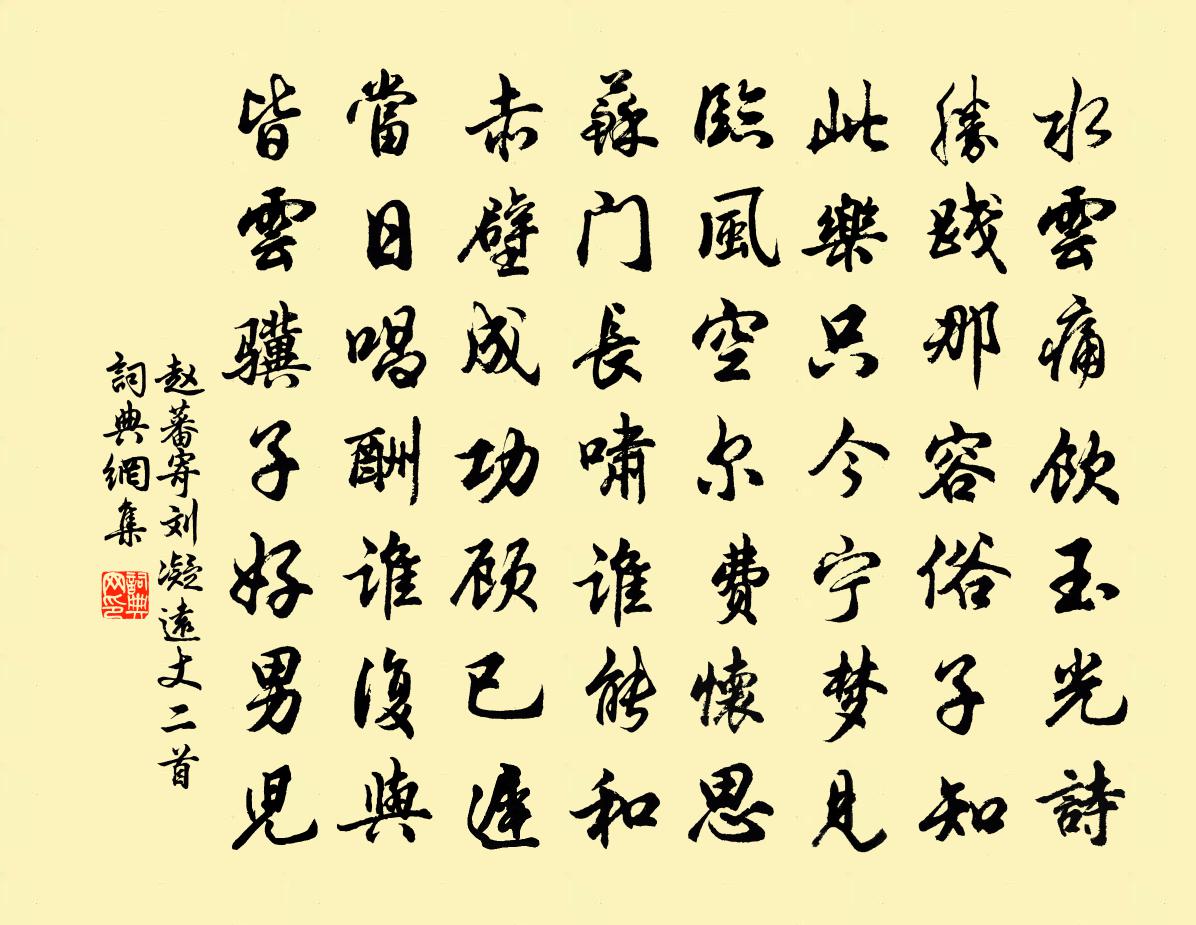 水雲痛飲玉光詩
勝践那容俗子知
此樂只今宁梦見
臨風空尔費懷思
蘇门長嘯谁能和
赤壁成功顾已遲
當日唱酬谁復與
皆雲骥子好男児
赵蕃寄刘凝遠丈二首
詞典網集
詞典网印